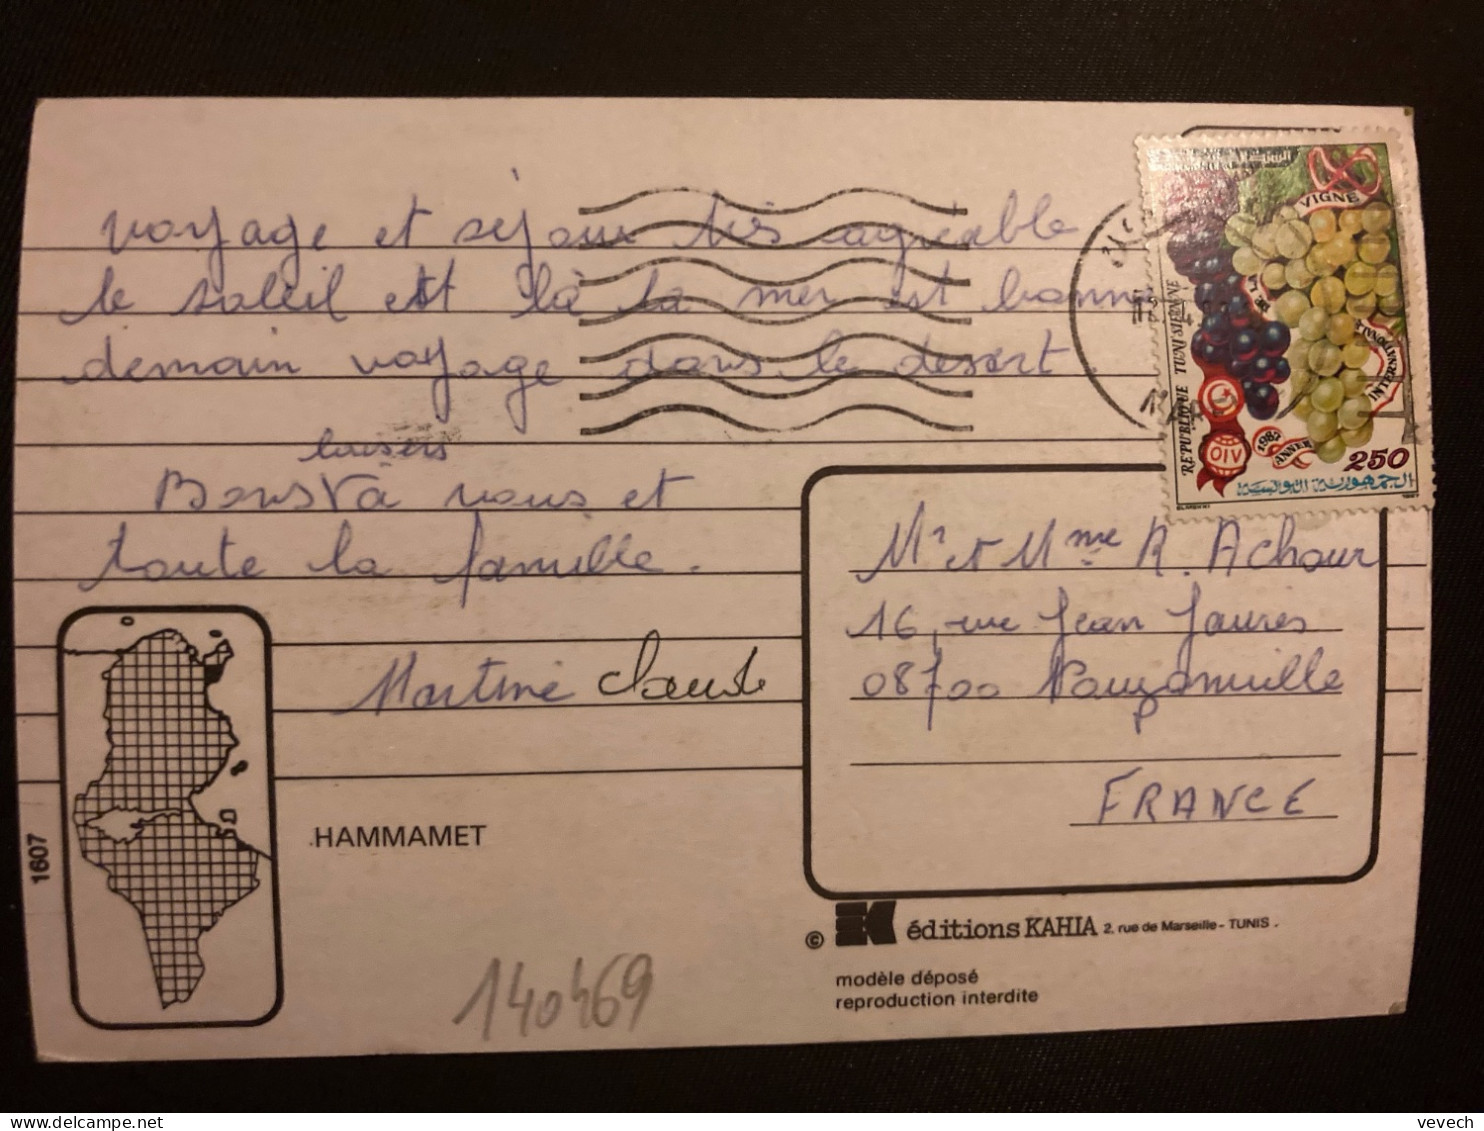 voyage et séjour très agréable
le soleil est là la mer est bonne
demain voyage dans le desert.
baisers
Bons à vous et
toute la famille.
Martine Claude
HAMMAMET
1607
140469
VIGNE
DE LA
INTERNATIONALE
REPUBLIQUE TUNISIENNE
OIV
1987
ANNEE
250
الجمهورية التونسية
Mr et Mme R. Achour
16, rue Jean Jaures
08700 Nouzonville
P
FRANCE
© éditions KAHIA 2, rue de Marseille - TUNIS -
modèle déposé
reproduction interdite
vevech